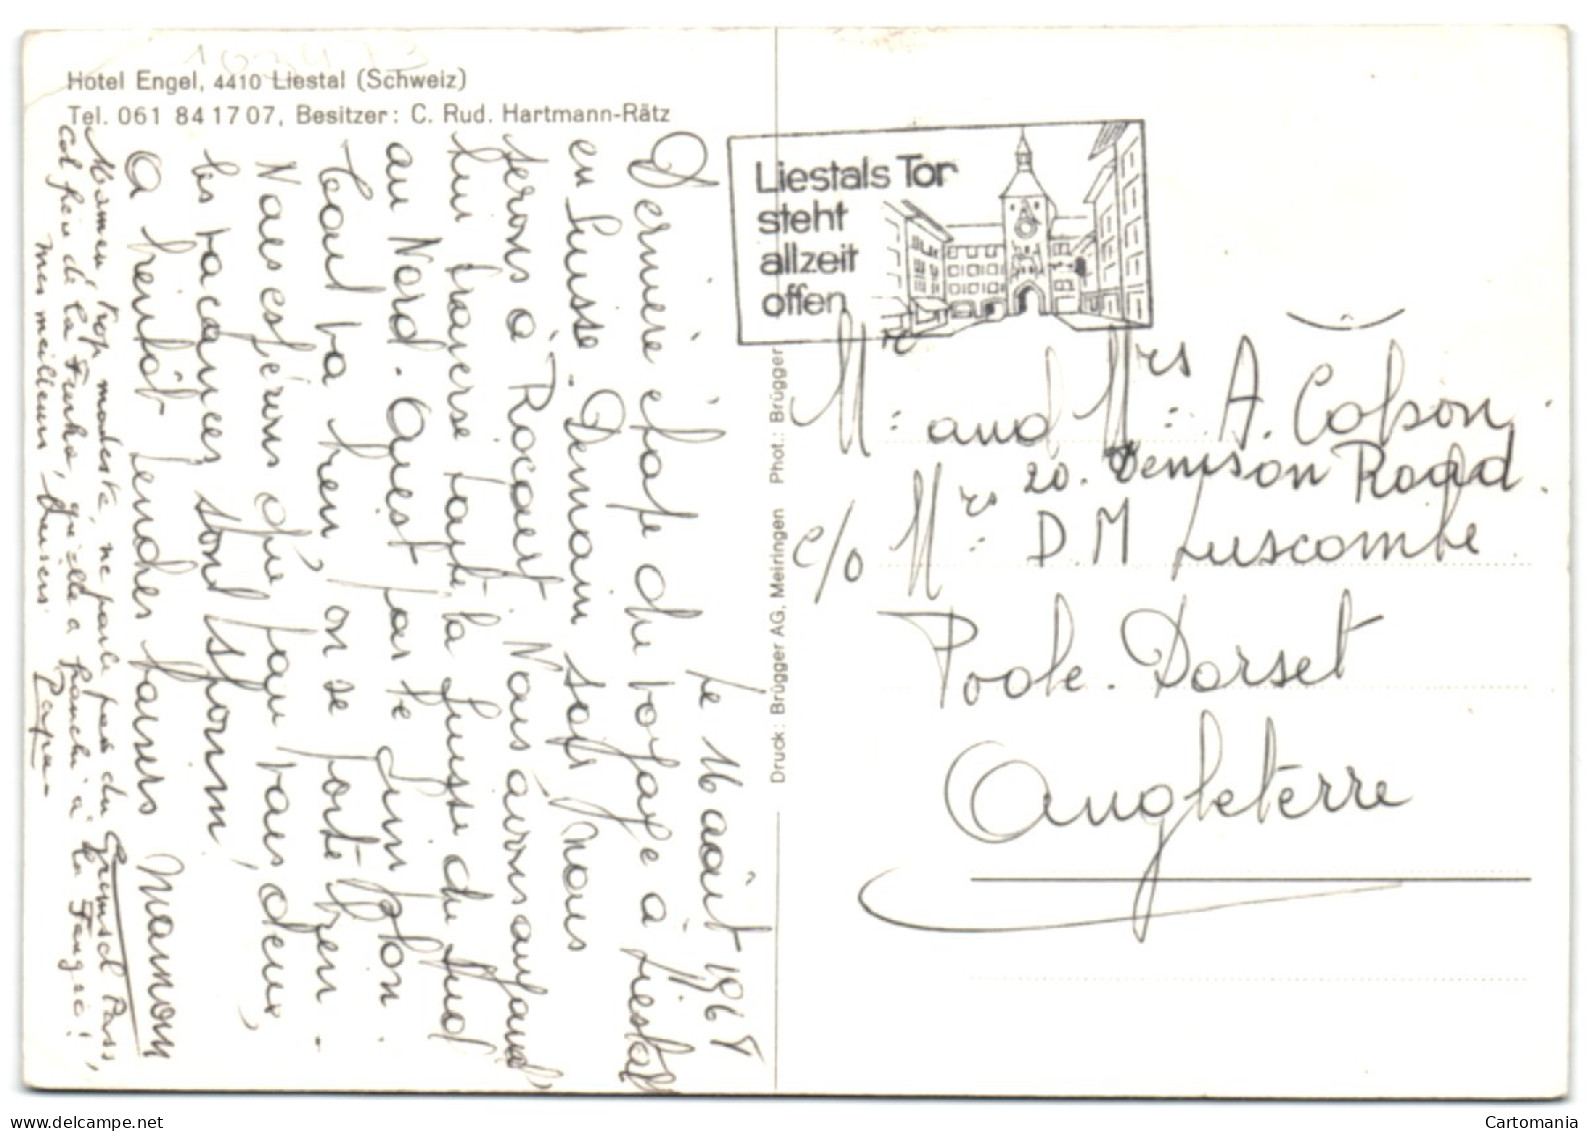 Hotel Engel, 4410 Liestal (Schweiz)
Tel. 061 84 17 07, Besitzer: C. Rud. Hartmann-Rätz
Le 16 août 1968
Dernière étape du voyage à Liestal
en Suisse. Demain soir nous
serons à Rocaert. Nous avons aujourd'
hui traversé toute la Suisse du Sud
au Nord. Ouest par le Simplon.
Tout va bien, on se porte bien.
Nous espérons que pour vous deux,
les vacances sont
A bientôt tendres baisers Maman
Maman, trop modeste, ne parle pas du Grimsel Pass,
col près de la Furka, qu'elle a franchi à la
mes meilleurs baisers Papa
Druck: Brügger AG, Meiringen Phot.: Brügger
Liestals Tor
steht
allzeit
offen
Mr and Mrs A. Copson
20. Denison Road
c/o Mrs D.M Luscombe
Poole. Dorset
Angleterre
Cartomania